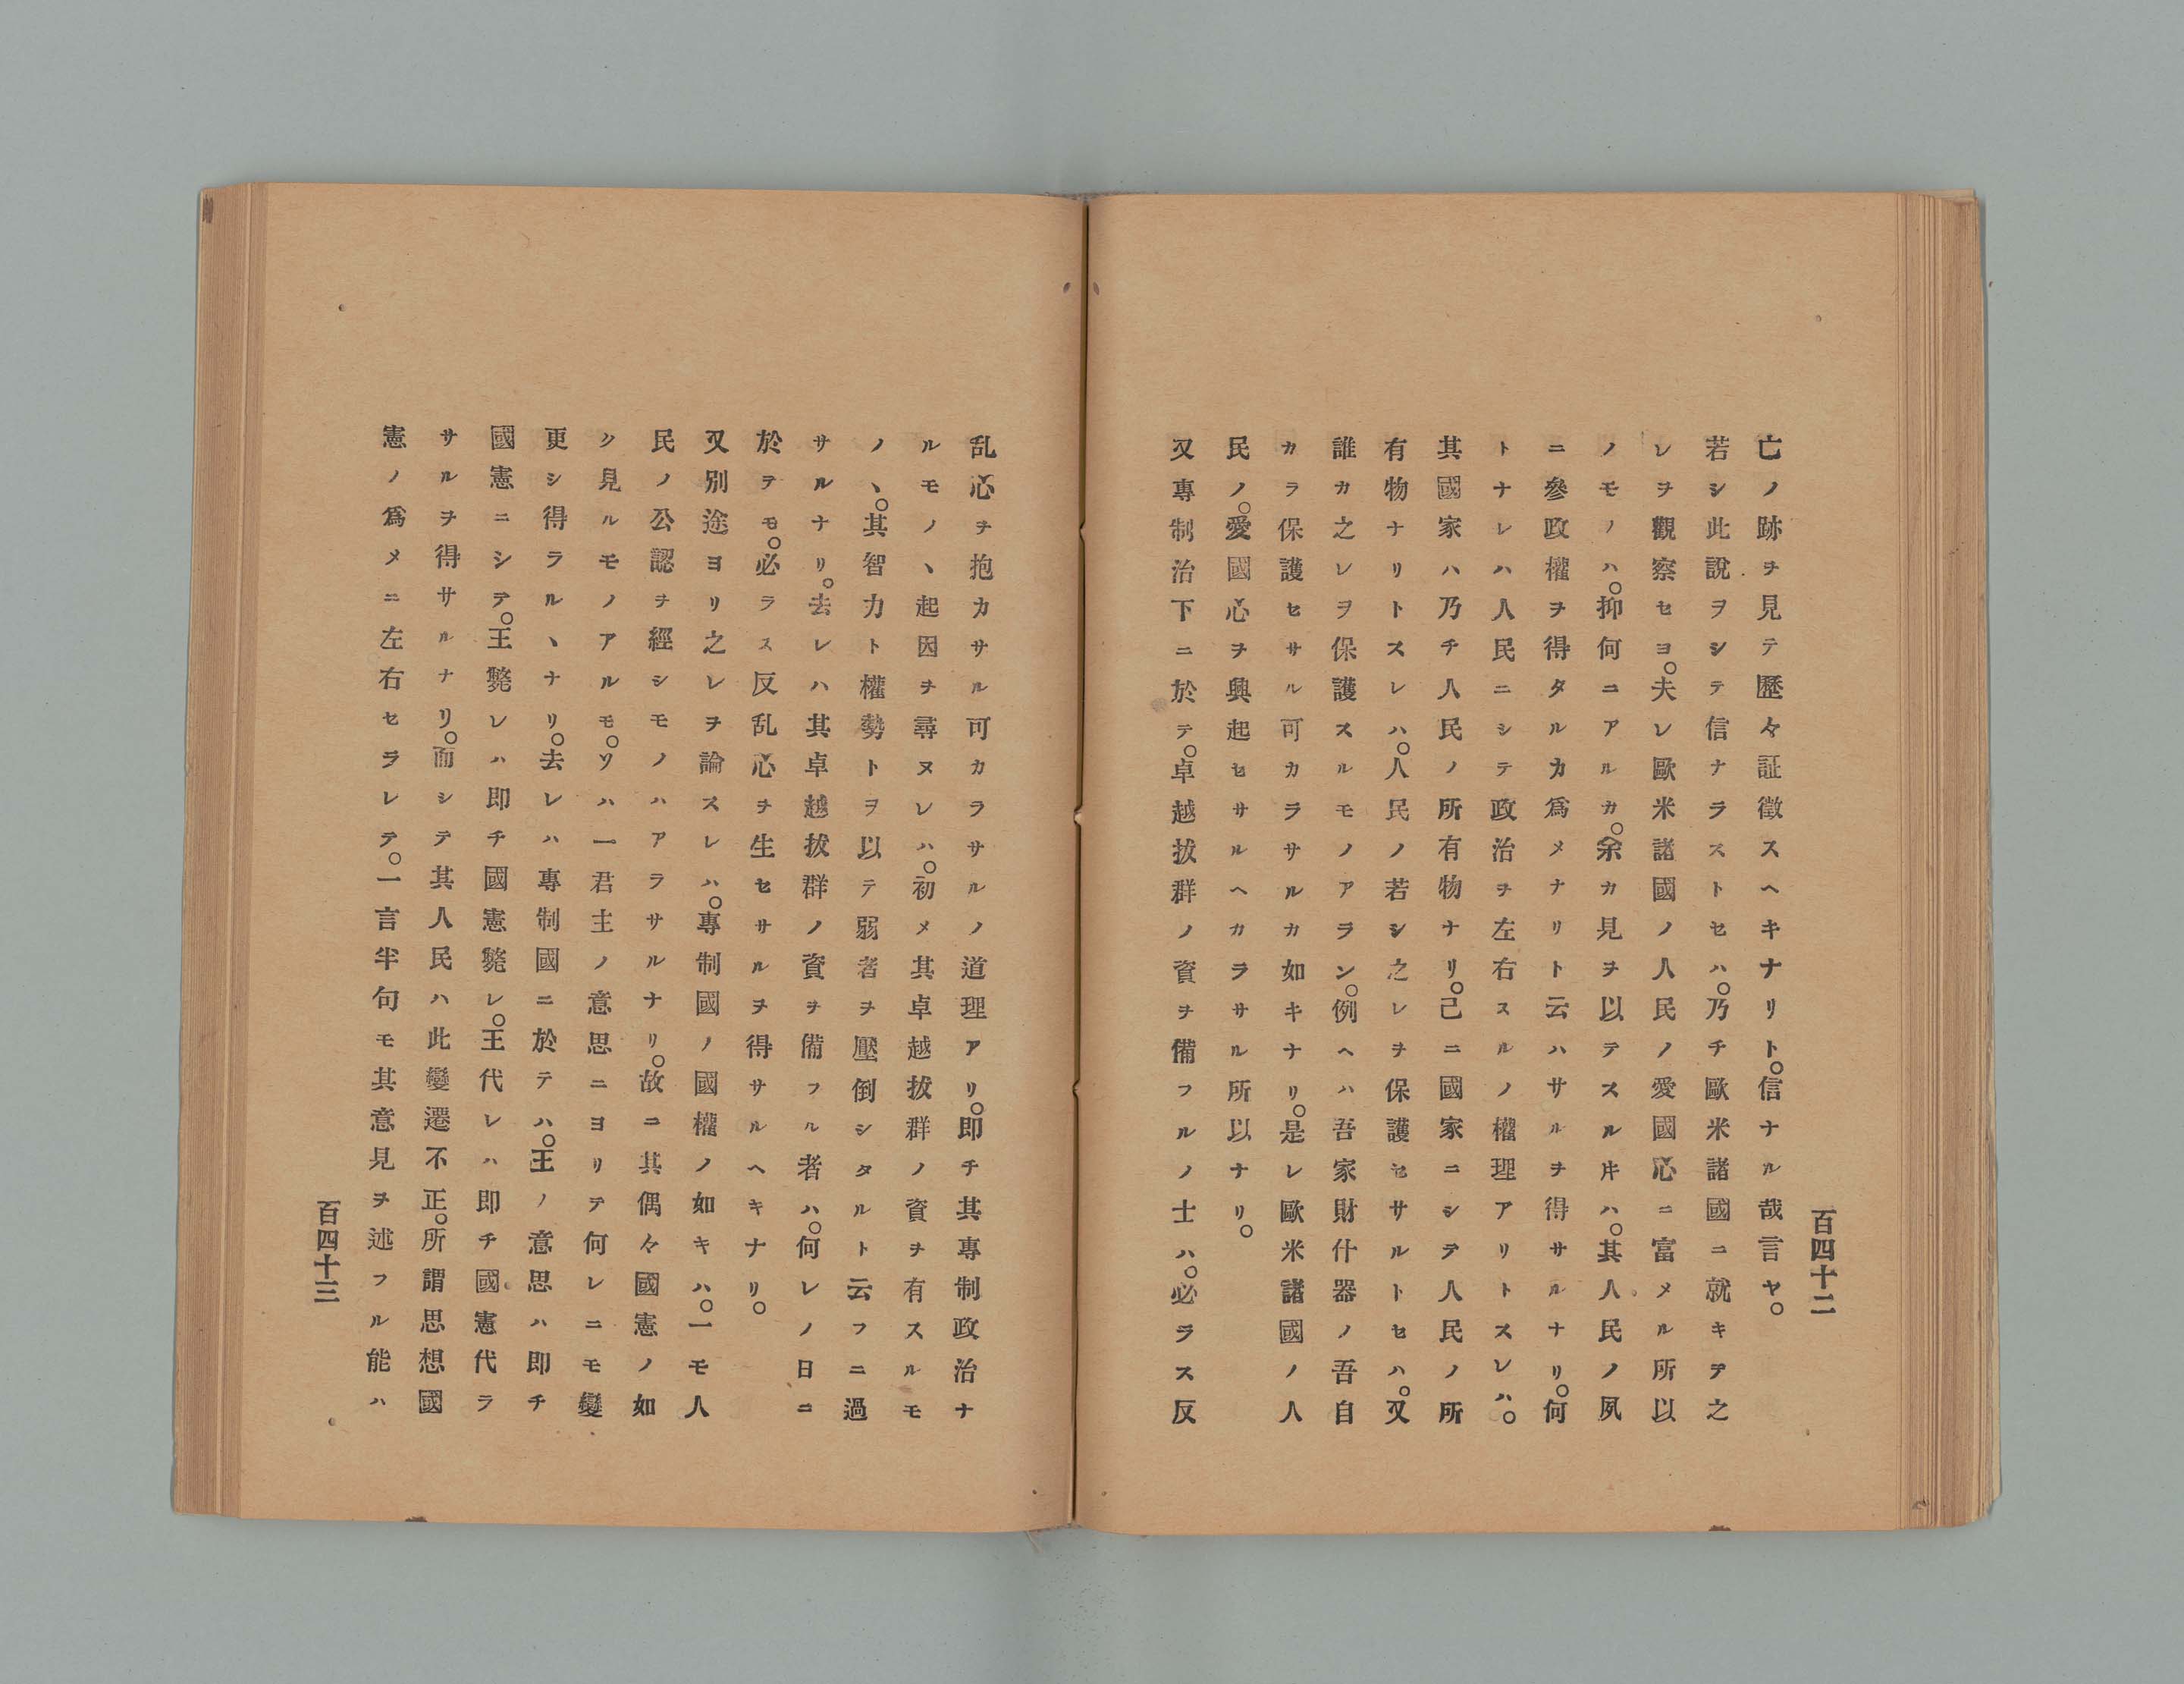 百四十二
亡ノ跡ヲ見テ歷々証徵スヘキナリト。信ナル哉言ヤ。
若シ此說ヲシテ信ナラストセハ。乃チ歐米諸國ニ就キテ之
レヲ觀察セヨ。夫レ歐米諸國ノ人民ノ愛國心ニ富メル所以
ノモノハ。抑何ニアルカ。余カ見ヲ以テスルヰハ。其人民ノ夙
ニ參政權ヲ得タルカ爲メナリト云ハサルヲ得サルナリ。何
トナレハ人民ニシテ政治ヲ左右スルノ權理アリトスレハ。
其國家ハ乃チ人民ノ所有物ナリ。己ニ國家ニシテ人民ノ所
有物ナリトスレハ。人民ノ若シ之レヲ保護セサルトセハ。又
誰カ之レヲ保護スルモノアラン。例ヘハ吾家財什器ノ吾自
カラ保護セサル可カラサルカ如キナリ。是レ歐米諸國ノ人
民ノ。愛國心ヲ興起セサルヘカラサル所以ナリ。
又專制治下ニ於テ。卓越拔群ノ資ヲ備フルノ士ハ。必ラス反
乱心ヲ抱カサル可カラサルノ道理アリ。即チ其專制政治ナ
ルモノヽ起因ヲ尋ヌレハ。初メ其卓越拔群ノ資ヲ有スルモ
ノヽ。其智力ト權勢トヲ以テ弱者ヲ壓倒シタルト云フニ過
サルナリ。去レハ其卓越拔群ノ資ヲ備フル者ハ。何レノ日ニ
於テモ。必ラス反乱心ヲ生セサルヲ得サルヘキナリ。
又別途ヨリ之レヲ論スレハ。專制國ノ國權ノ如キハ。一モ人
民ノ公認ヲ經シモノハアラサルナリ。故ニ其偶々國憲ノ如
ク見ルモノアルモ。ソハ一君主ノ意思ニヨリテ何レニモ變
更シ得ラルヽナリ。去レハ專制國ニ於テハ。王ノ意思ハ即チ
國憲ニシテ。王斃レハ即チ國憲斃レ。王代レハ即チ國憲代ラ
サルヲ得サルナリ。而シテ其人民ハ此變遷不正。所謂思想國
憲ノ爲メニ左右セラレテ。一言半句モ其意見ヲ述フル能ハ
百四十三